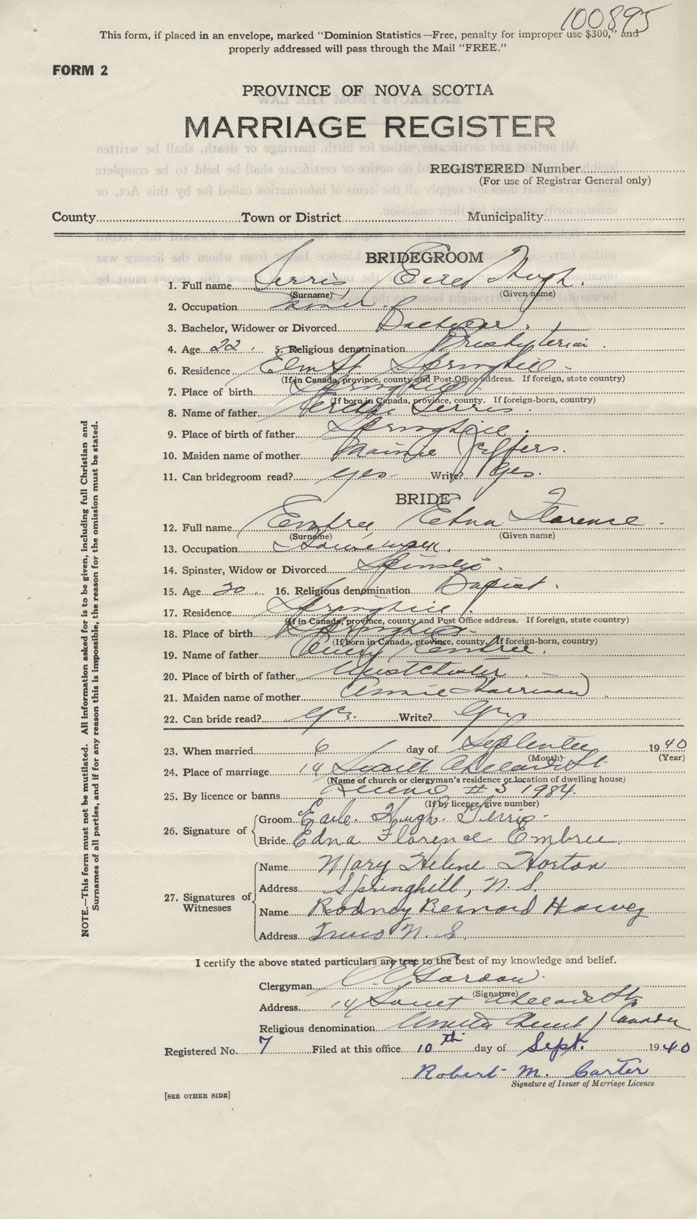 100895
This form, if placed in an envelope, marked "Dominion Statistics—Free, penalty for improper use $300," and
properly addressed will pass through the Mail "FREE."
FORM 2
PROVINCE OF NOVA SCOTIA
MARRIAGE REGISTER
REGISTERED Number
(For use of Registrar General only)
County Town or District Municipality
BRIDEGROOM
1. Full name Hugh
(Surname) (Given name)
2. Occupation
3. Bachelor, Widower or Divorced Bachelor
4. Age 22 5. Religious denomination Presbyterian
6. Residence Elm St. Springhill
(If in Canada, province, county and Post Office address. If foreign, state country)
7. Place of birth Springhill
(If born in Canada, province, county. If foreign-born, country)
8. Name of father
9. Place of birth of father Springhill
10. Maiden name of mother Jeffers
11. Can bridegroom read? Yes Write? Yes.
BRIDE
12. Full name Embree Edna Florence
(Surname) (Given name)
13. Occupation
14. Spinster, Widow or Divorced Spinster
15. Age 20 16. Religious denomination Baptist
17. Residence Springhill
(If in Canada, province, county and Post Office address. If foreign, state country)
18. Place of birth Springhill
(If born in Canada, province, county. If foreign-born, country)
19. Name of father Embree
20. Place of birth of father
21. Maiden name of mother Annie Harrison
22. Can bride read? Yes. Write? Yes
23. When married 6 day of September 1940
(Month) (Year)
24. Place of marriage 14 St
(Name of church or clergyman's residence or location of dwelling house)
25. By licence or banns #3 1984
(If by licence, give number)
26. Signature of Groom Earle Hugh
Bride Edna Florence Embree
27. Signatures of Witnesses
Name Mary Helene Horton
Address Springhill, N.S.
Name Rodney Bernard
Address Truro N.S.
I certify the above stated particulars are true to the best of my knowledge and belief.
Clergyman Gordon
(Signature)
Address 14 St
Religious denomination United Church / Canada
Registered No. 7 Filed at this office 10th day of Sept. 1940
Robert M. Carter
Signature of Issuer of Marriage Licence
[SEE OTHER SIDE]
NOTE.—This form must not be mutilated. All information asked for is to be given, including full Christian and
Surnames of all parties, and if for any reason this is impossible, the reason for the omission must be stated.